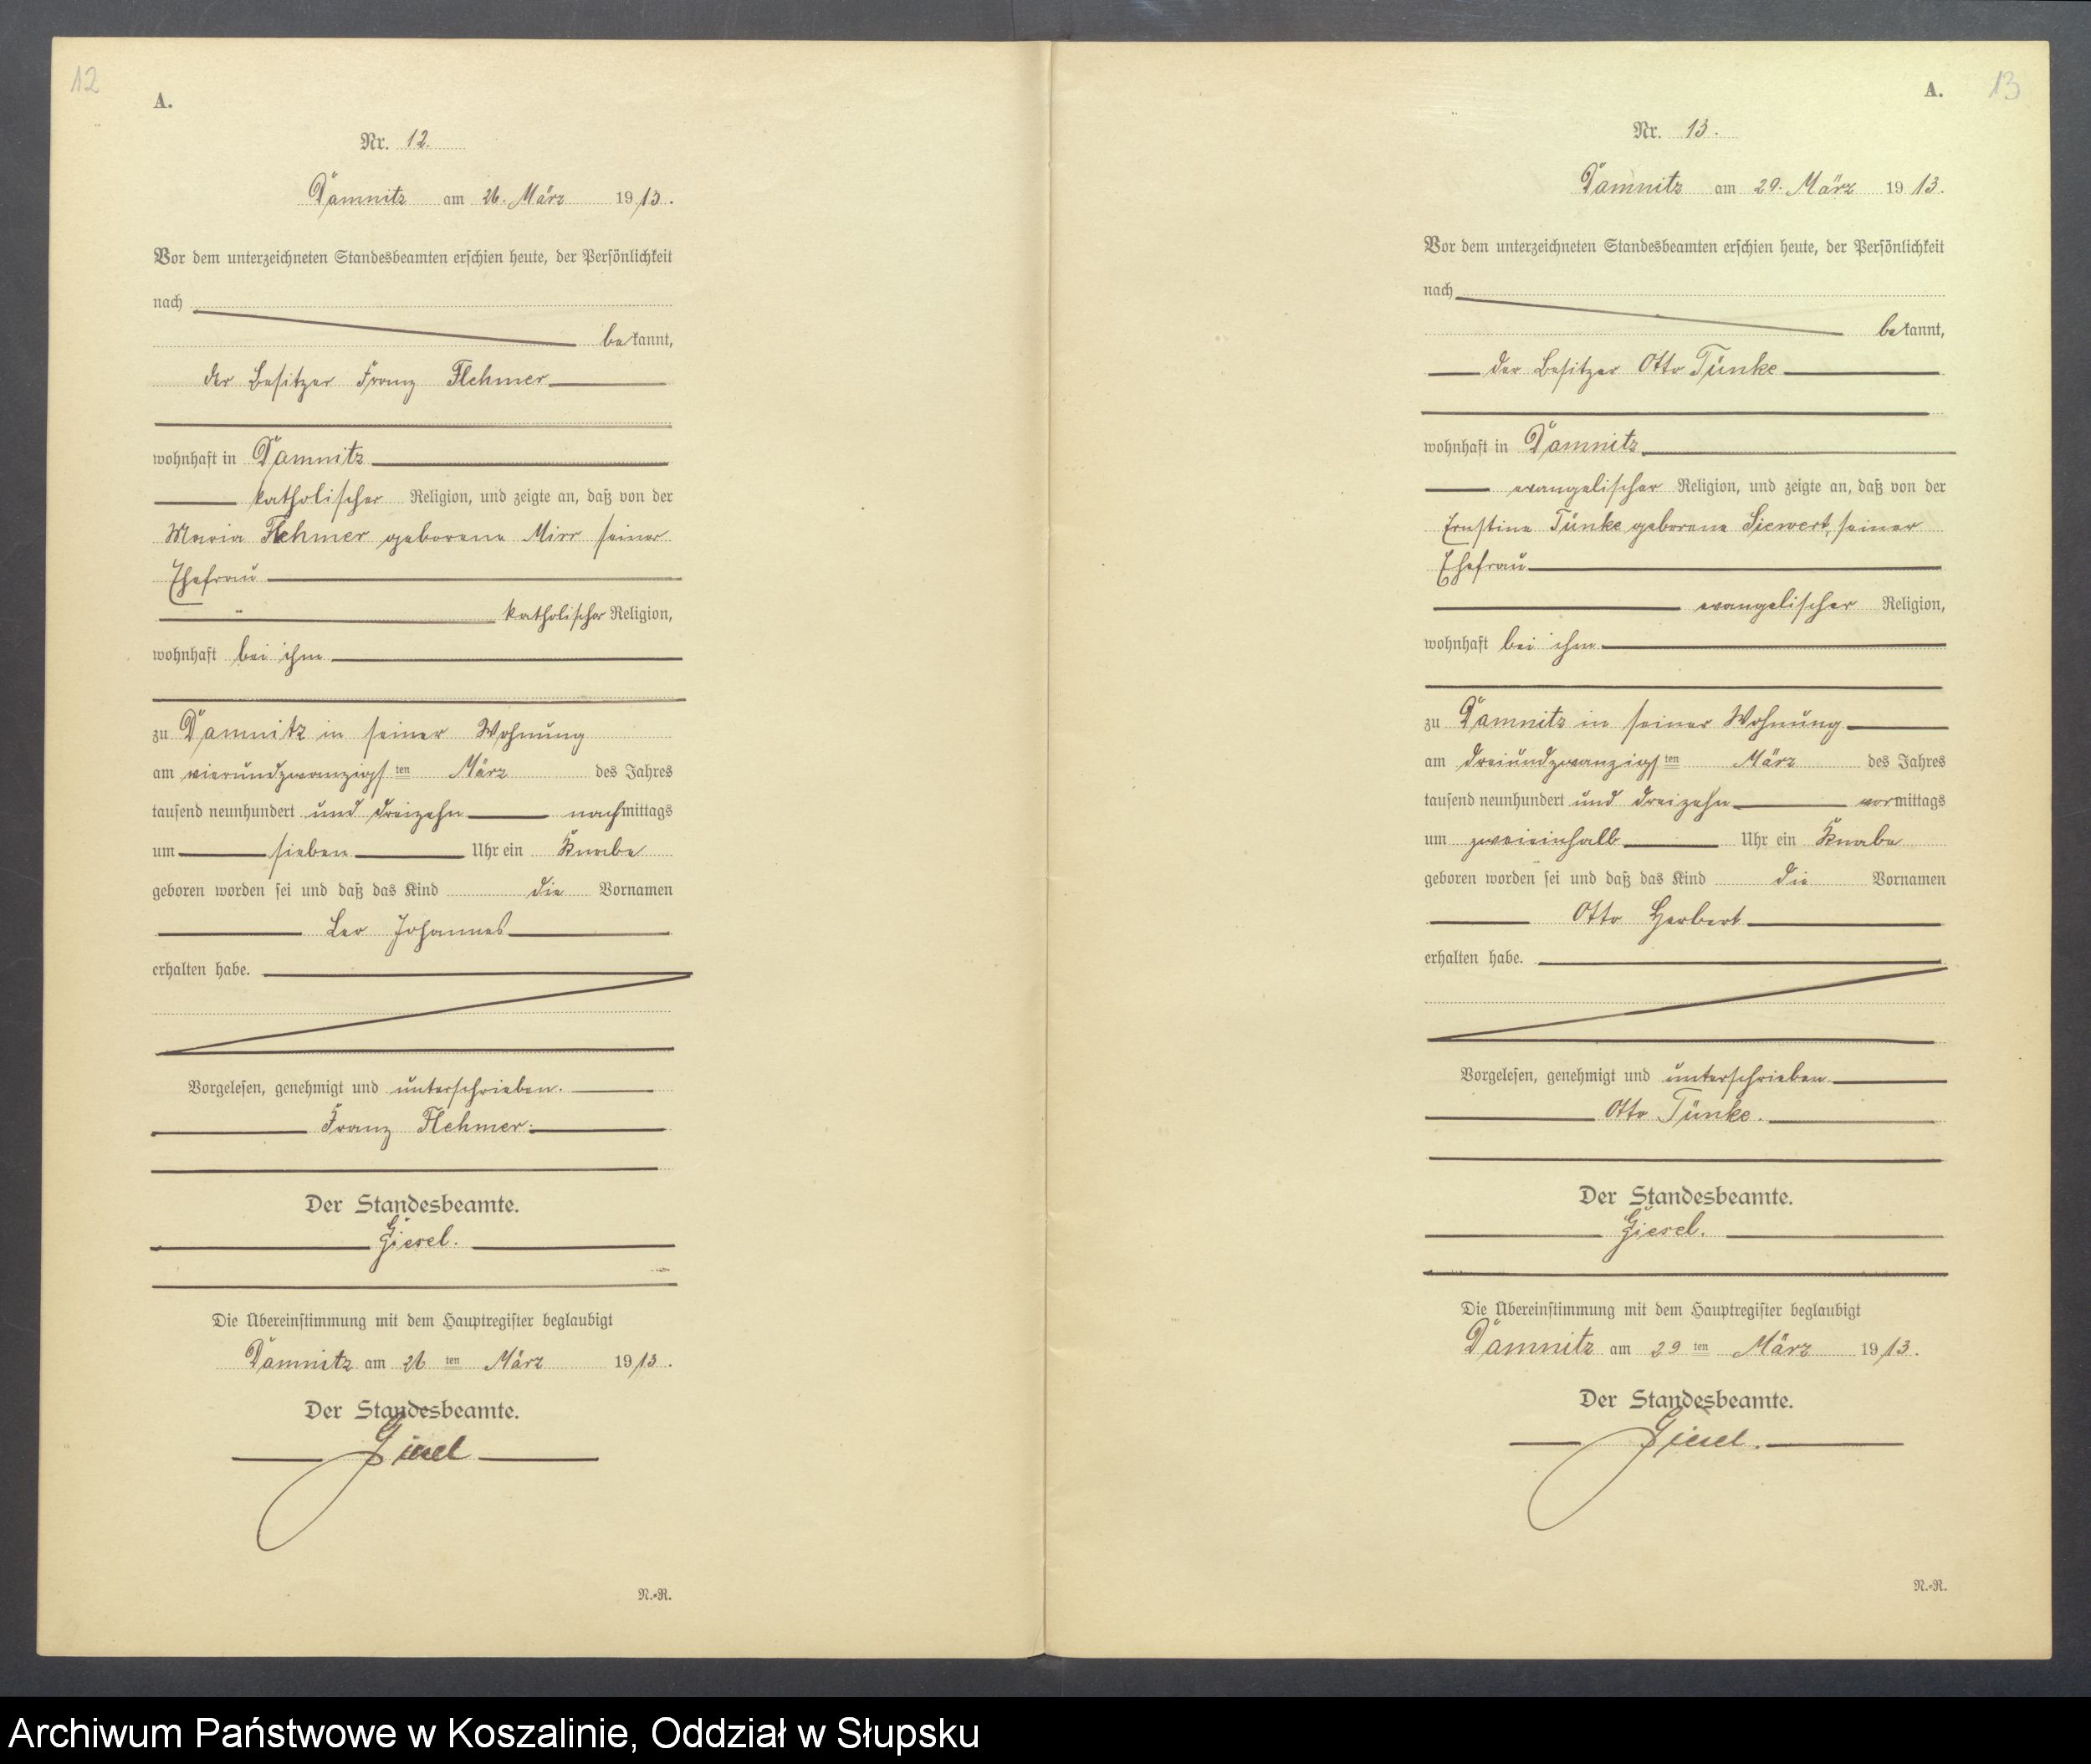 12
A.
Nr. 12.
Damnitz am 26. März 1913.
Vor dem unterzeichneten Standesbeamten erschien heute, der Persönlichkeit
nach
bekannt,
der Besitzer Franz Flehmer
wohnhaft in Damnitz
katholischer Religion, und zeigte an, daß von der
Maria Flehmer geborene Mirr seiner
Ehefrau
katholischer Religion,
wohnhaft bei ihm
zu Damnitz in seiner Wohnung
am vierundzwanzigsten März des Jahres
tausend neunhundert und dreizehn nachmittags
um sieben Uhr ein Knabe
geboren worden sei und daß das Kind die Vornamen
Leo Johannes
erhalten habe.
Vorgelesen, genehmigt und unterschrieben.
Franz Flehmer.
Der Standesbeamte.
Giesel.
Die Übereinstimmung mit dem Hauptregister beglaubigt
Damnitz am 26ten März 1913.
Der Standesbeamte.
Giesel
N.=R.
13
A.
Nr. 13.
Damnitz am 29. März 1913.
Vor dem unterzeichneten Standesbeamten erschien heute, der Persönlichkeit
nach
bekannt,
der Besitzer Otto Tünke
wohnhaft in Damnitz
evangelischer Religion, und zeigte an, daß von der
Ernstine Tünke geborene Siewert, seiner
Ehefrau
evangelischer Religion,
wohnhaft bei ihm
zu Damnitz in seiner Wohnung
am dreiundzwanzigsten März des Jahres
tausend neunhundert und dreizehn vormittags
um zweieinhalb Uhr ein Knabe
geboren worden sei und daß das Kind die Vornamen
Otto Herbert
erhalten habe.
Vorgelesen, genehmigt und unterschrieben
Otto Tünke.
Der Standesbeamte.
Giesel.
Die Übereinstimmung mit dem Hauptregister beglaubigt
Damnitz am 29ten März 1913.
Der Standesbeamte.
Giesel.
N.=R.
Archiwum Państwowe w Koszalinie, Oddział w Słupsku